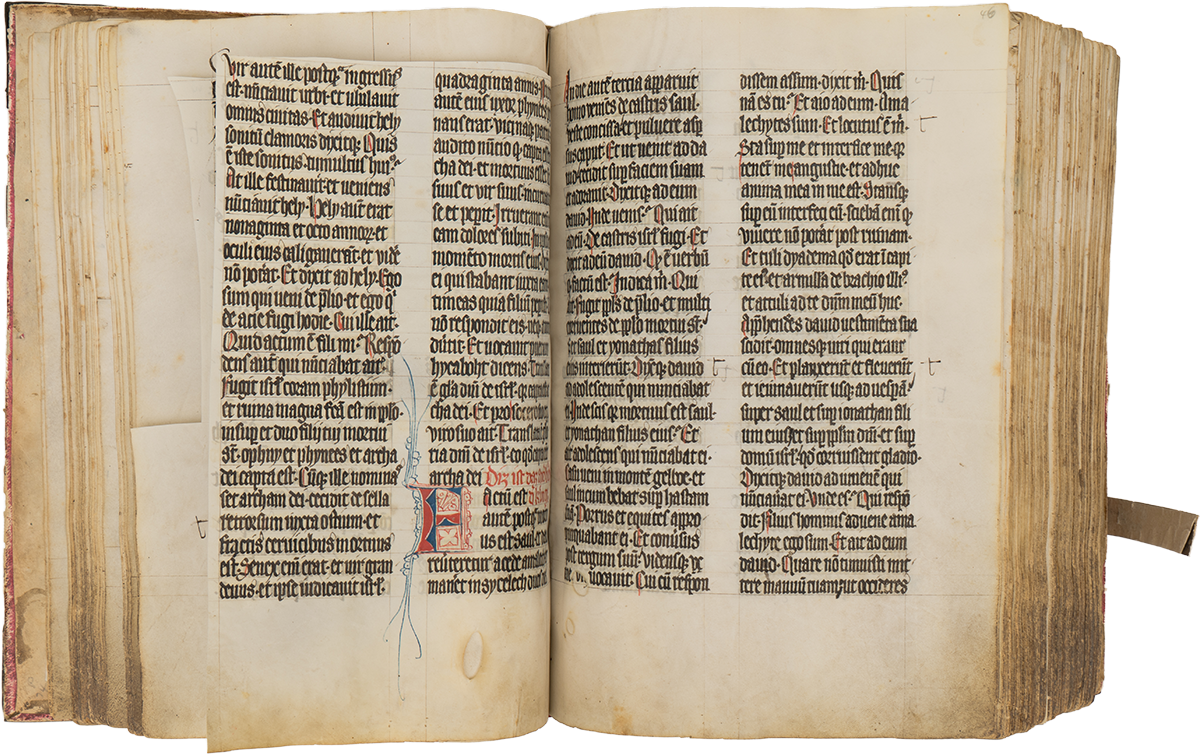 vir autē ille postq̄ ingressꝰ
est · nūciauit urbi · et ululauit
omnis ciuitas · Et audiuit hely
sonitū clamoris dixitqꝫ Quis
ē iste sonitus tumultus huiꝰ
At ille festinauit et veniens
nūciauit hely · hely autē erat
nonaginta et octo annoꝝ · et
oculi eius caligauerāt · et videre
nō poterat · Et dixit ad hely · Ego
sum qui veni de p̄lio · et ego q̄
de acie fugi hodie · Cui ille ait ·
Quid actum ē fili mi · Respō
dens autē qui nūciabat ait ·
fugit isrł coram phylistiim ·
et ruina magna fc̄a est in pp̄lo ·
insup et duo filij tui mortui
st̄ · ophny et phynees · et archa
dei capta est · Cūqꝫ ille nomina
set archam dei · cecidit de sella
retrorsum iuxta ostium · et
fractis ceruicibus mortuus
est · Senex em̄ erat · et vir gran
deuus · et ipse iudicauit isrł ·
quadraginta annis ·
autē eius uxor phynees
nans erat · vicinaqꝫ
audito nūcio qꝫ capta
cha dei · et mortuus esset
suus · et vir suus · incuruauit
se et pepit · Irruerant em̄
eam dolores subiti · In ipso
momēto mortis eius
ei qui stabant iuxta eam
timeas quia filium pepisti
nō respondit eis · neqꝫ
duertit · Et uocauit puerum
hycaboht dicens · Translata
ē gł̄a dn̄i de isrł · qꝫ capta est
cha dei · Et pro socero
viro suo ait · Translata
ria dn̄i de isrł · eo qd̄ capta
archa dei Diz ist daz
Actū est
autē postqꝫ
us est saul · et
reuiteretur a cede amalech
maneret in sycelech duos
In die autē tercia apparuit
homo veniēs de castris saul ·
veste conscissa · et puluere asp
sus caput · Et ut venit ad da
uid · cecidit sup faciem suam
et adorauit · Dixitqꝫ ad eum
dauid · Unde venis · Qui ait
ad eū · De castris isrł fugi · Et
dixit ad eū dauid · Qꝫ ē verbū
qꝫ factū est · Indica m̄ · Qui
ait · fugit pp̄ls de p̄lio · et multi
corruentes de pp̄lo mortui st̄ ·
sꝫ et saul et yonathas filius
eius interierūt · Dixitqꝫ dauid
ad adolescentē qui nunciabat
ei · Unde scis qꝫ mortuus est saul ·
et yonathan filius eius · Et
ait adolescens qui nūciabat ei ·
Casu veni in montē gelboe · et
saul incumbebat sup hastam
suā · Porro currus et equites appro
pinquabant ei · Et conuisus
post tergum suū · vidensqꝫ me
vocauit · Cui cū respon
dissem assum · dixit m̄ · Quis
nā es tu · Et aio ad eum · Ama
lechytes sum · Et locutus ē m̄ ·
Sta sup me et interfice me · qꝫ
tenēt me angustie · et adhuc
anima mea in me est · Stansqꝫ
sup eū interfeci eū · sciebā em̄ qꝫ
viuere nō poterat post ruinam ·
Et tuli dyadema qd̄ erat i capi
te eiꝰ · et armilla de brachio illiꝰ ·
et attuli ad te dn̄m meū huc ·
Appͪendēs dauid uestimēta sua
scidit · omnesqꝫ uiri qui erant
cū eo · Et planxerunt et fleuerūt
et ieiunauerūt usqꝫ ad vesperā ·
super saul et sup ionathan fili
um eius · et sup pp̄lm dn̄i · et sup
domū isrł · qd̄ corruissent gladio ·
Dixitqꝫ dauid ad iuuenē qui
nūciauat ei · Vnde es · Qui respō
dit · filius hominis aduene ama
lechyte ego sum · Et ait ad eum
dauid · Quare nō timuisti mit
tere manum tuam · ut occideres